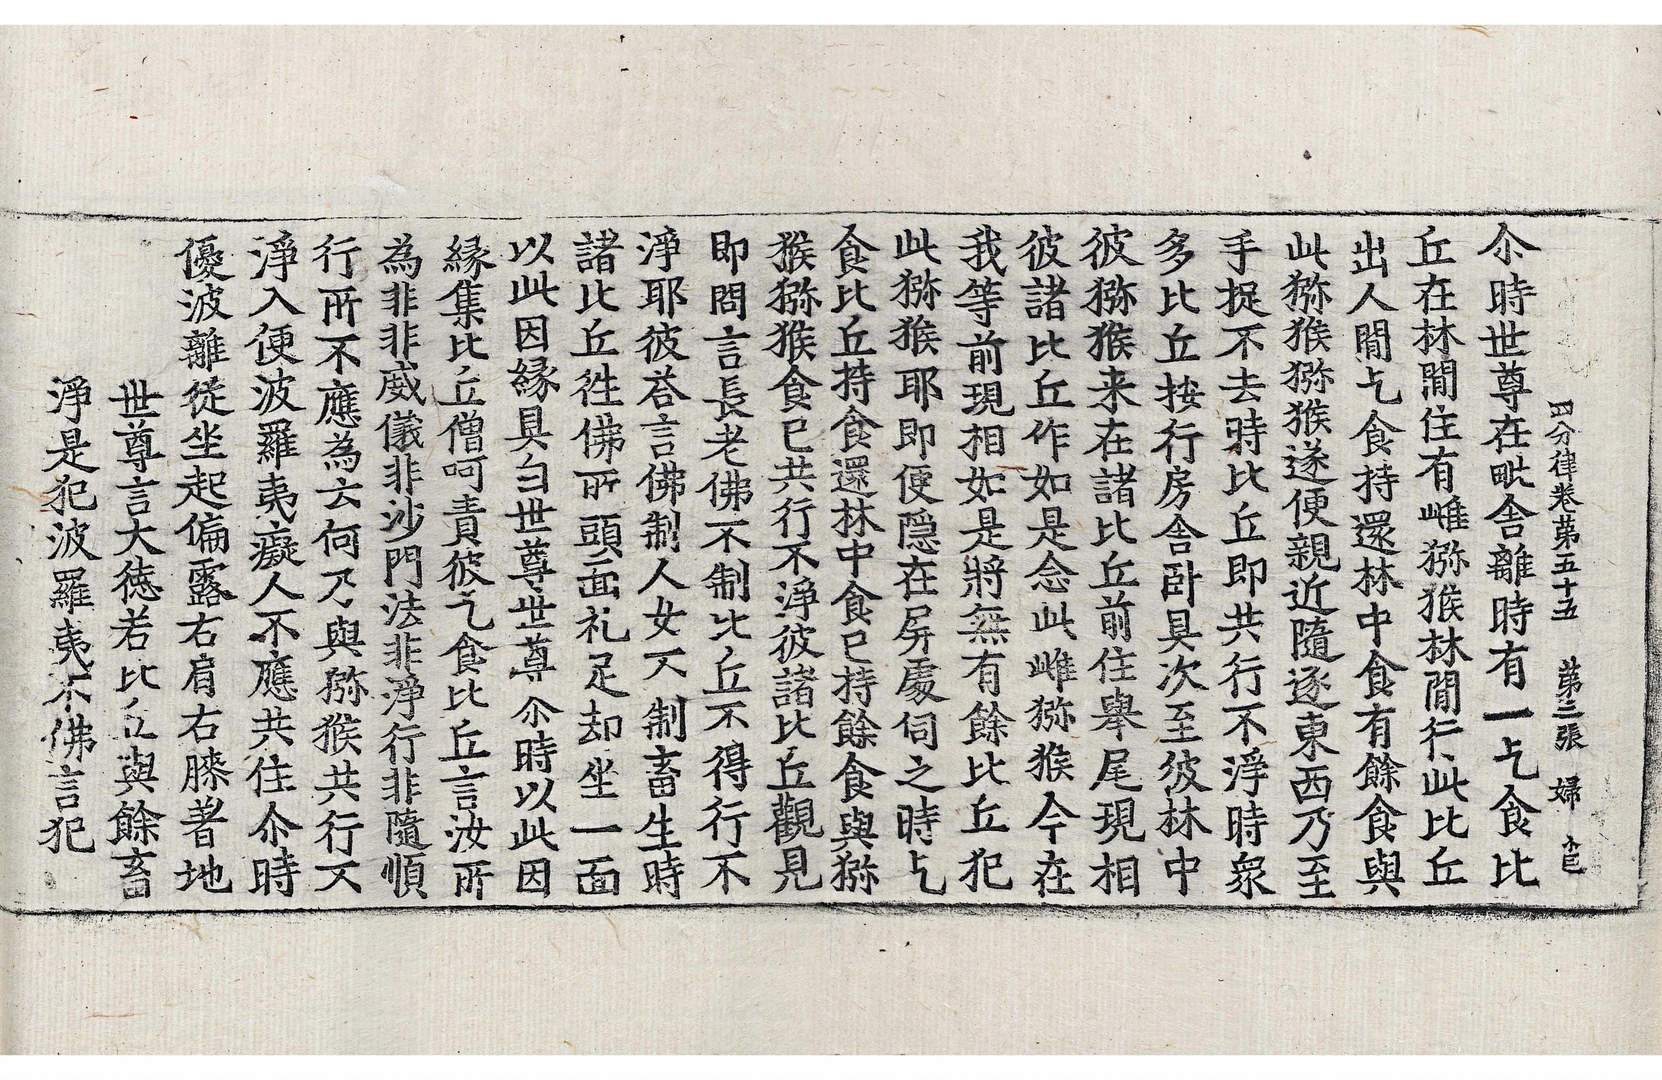 四分律卷苐五十五 苐三張 婦 㐌
尒時世尊在毗舎離時有一乞食比
丘在林閒住有雌猕猴林閒行此比丘
出人閒乞食持還林中食有餘食與
此猕猴猕猴遂便親近隨逐東西乃至
手捉不去時比丘即共行不淨時衆
多比丘按行房舎卧具次至彼林中
彼猕猴来在諸比丘前住舉尾現相
彼諸比丘作如是念此雌猕猴今在
我等前現相如是將無有餘比丘犯
此猕猴耶即便隐在屏處伺之時乞
食比丘持食還林中食已持餘食與猕
猴猕猴食已共行不淨彼諸比丘觀見
即問言長老佛不制比丘不得行不
淨耶彼荅言佛制人女不制畜生時
諸比丘徃佛所頭面礼足却坐一面
以此因縁具白世尊世尊尒時以此因
縁集比丘僧呵責彼乞食比丘言汝所
為非非威儀非沙門法非淨行非隨順
行所不應為云何乃與猕猴共行不
淨入便波羅夷癡人不應共住尒時
優波離從坐起偏露右肩右膝著地
世尊言大德若比丘與餘畜
淨是犯波羅夷不佛言犯